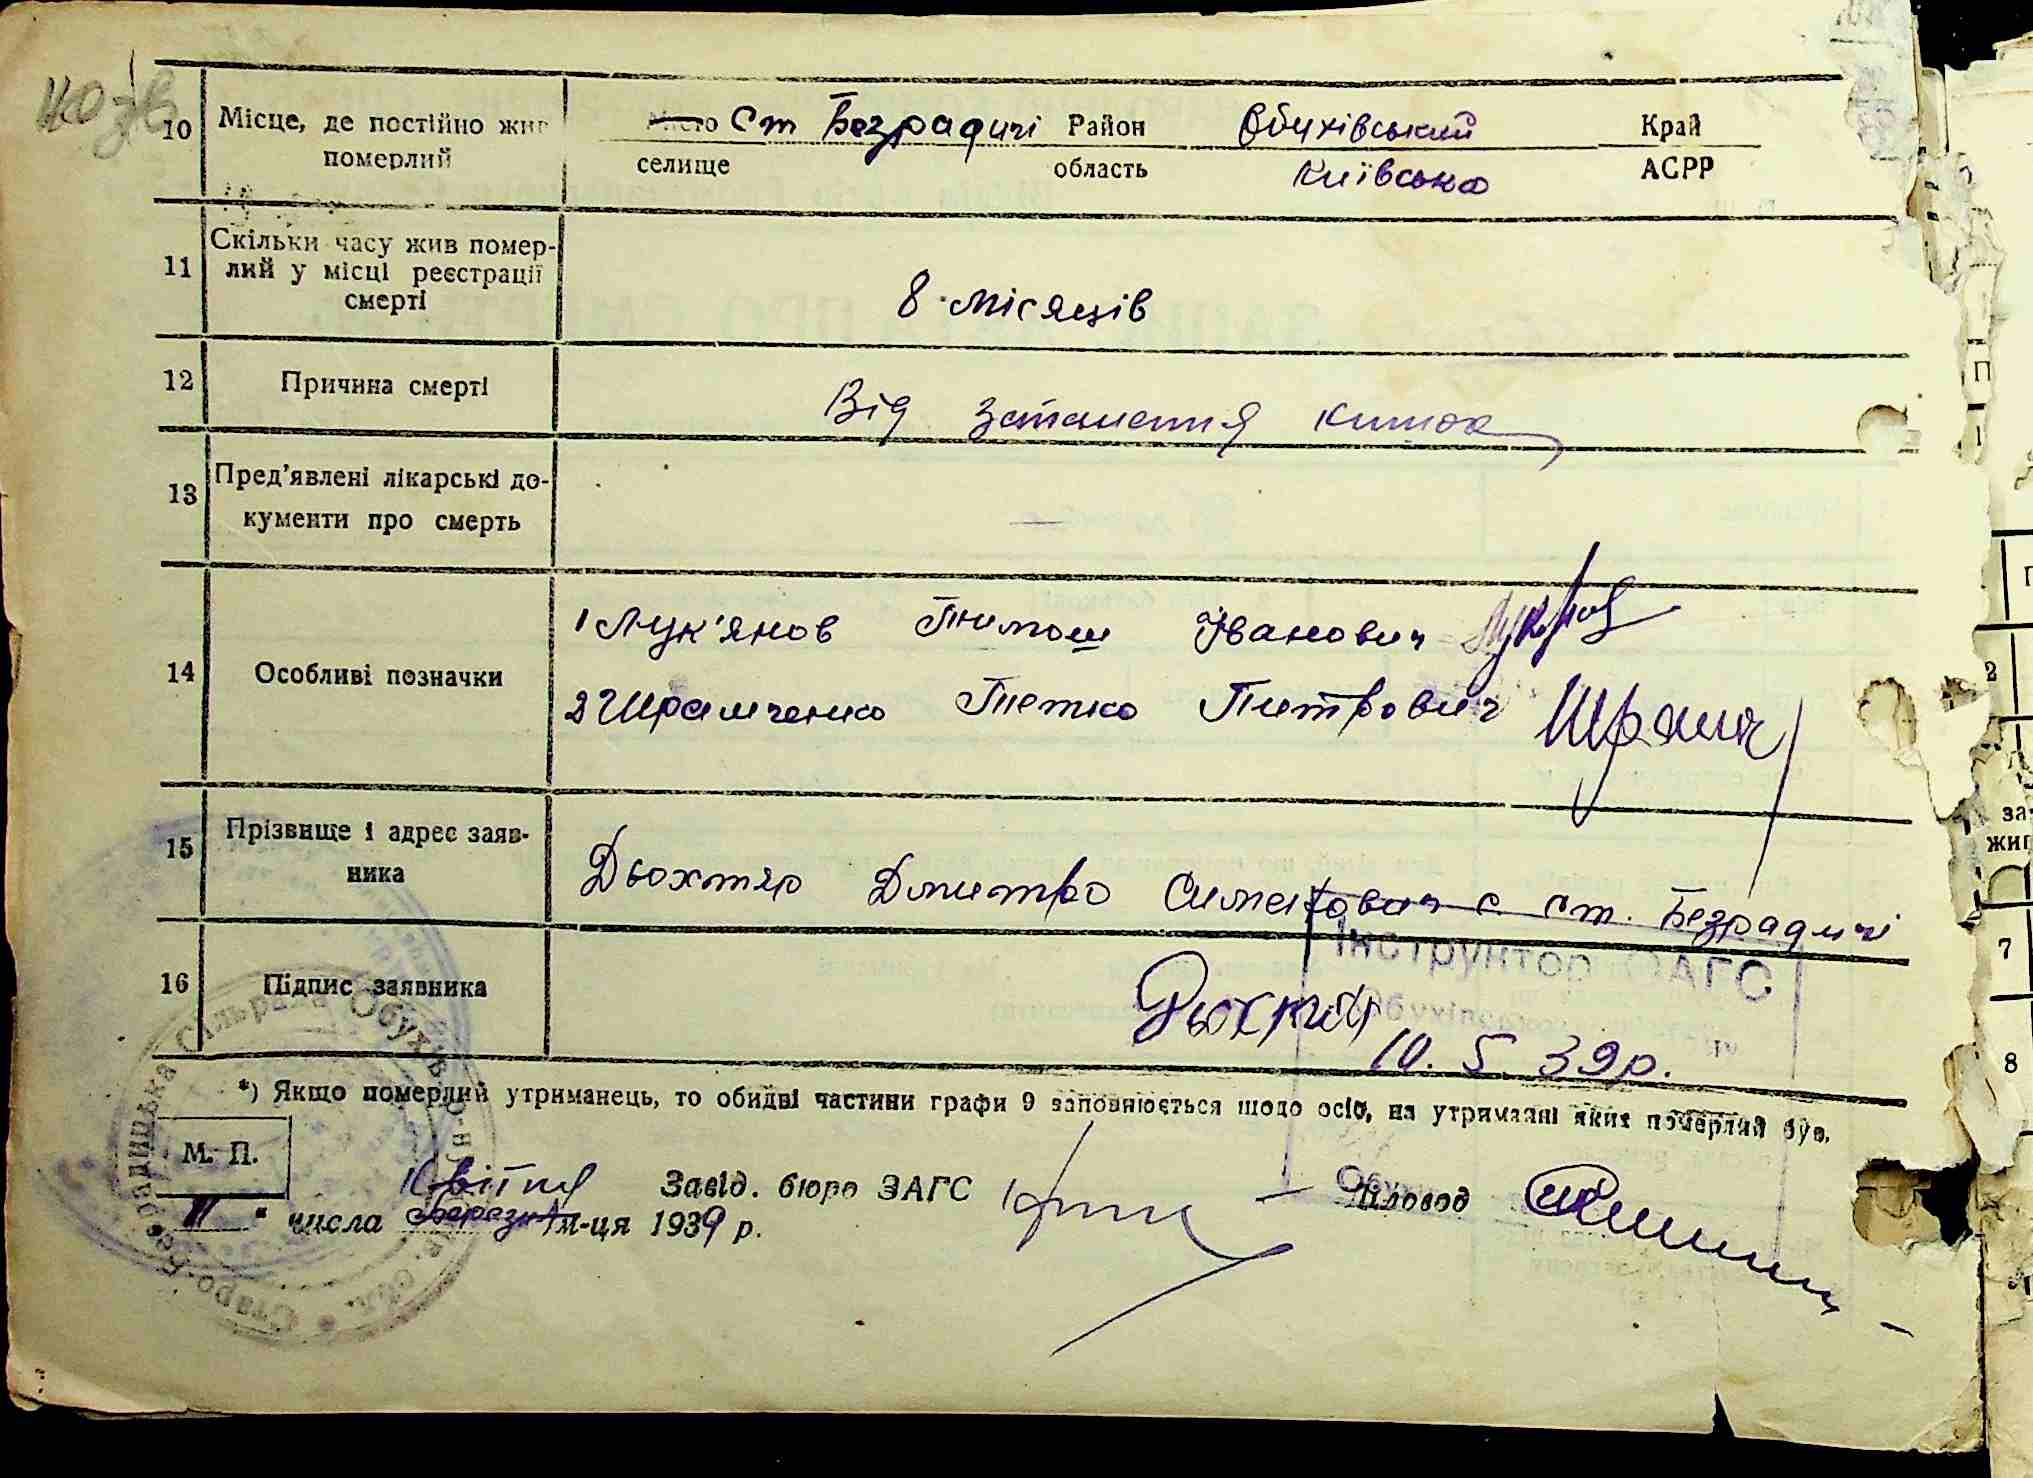 10 Місце, де постійно жив померлий
Місто Ст Безрадичі Район Обухівський Край
селище область Київська АСРР
11 Скільки часу жив помер-
лий у місці реєстрації
смерті
8 місяців
12 Причина смерті
Від запалення кишок
13 Пред'явлені лікарські до-
кументи про смерть
—
14 Особливі позначки
1 Лук'янов Тимош Іванович
2 Шрамченко Петро Питрович Шрамч
15 Прізвище і адрес заяв-
ника
Дьохтяр Дмитро Семенович с ст. Безрадичі
16 Підпис заявника
Дьохтяр
Інструктор ЗАГС
10. 5 39р.
*) Якщо померлий утриманець, то обидві частини графи 9 заповнюється щодо осіб, на утриманні яких померлий був.
М. П.
Квітня Завід. бюро ЗАГС Діловод
" числа Березня м-ця 1939 р.
Старо-Безрадицька Сільрада Обухів